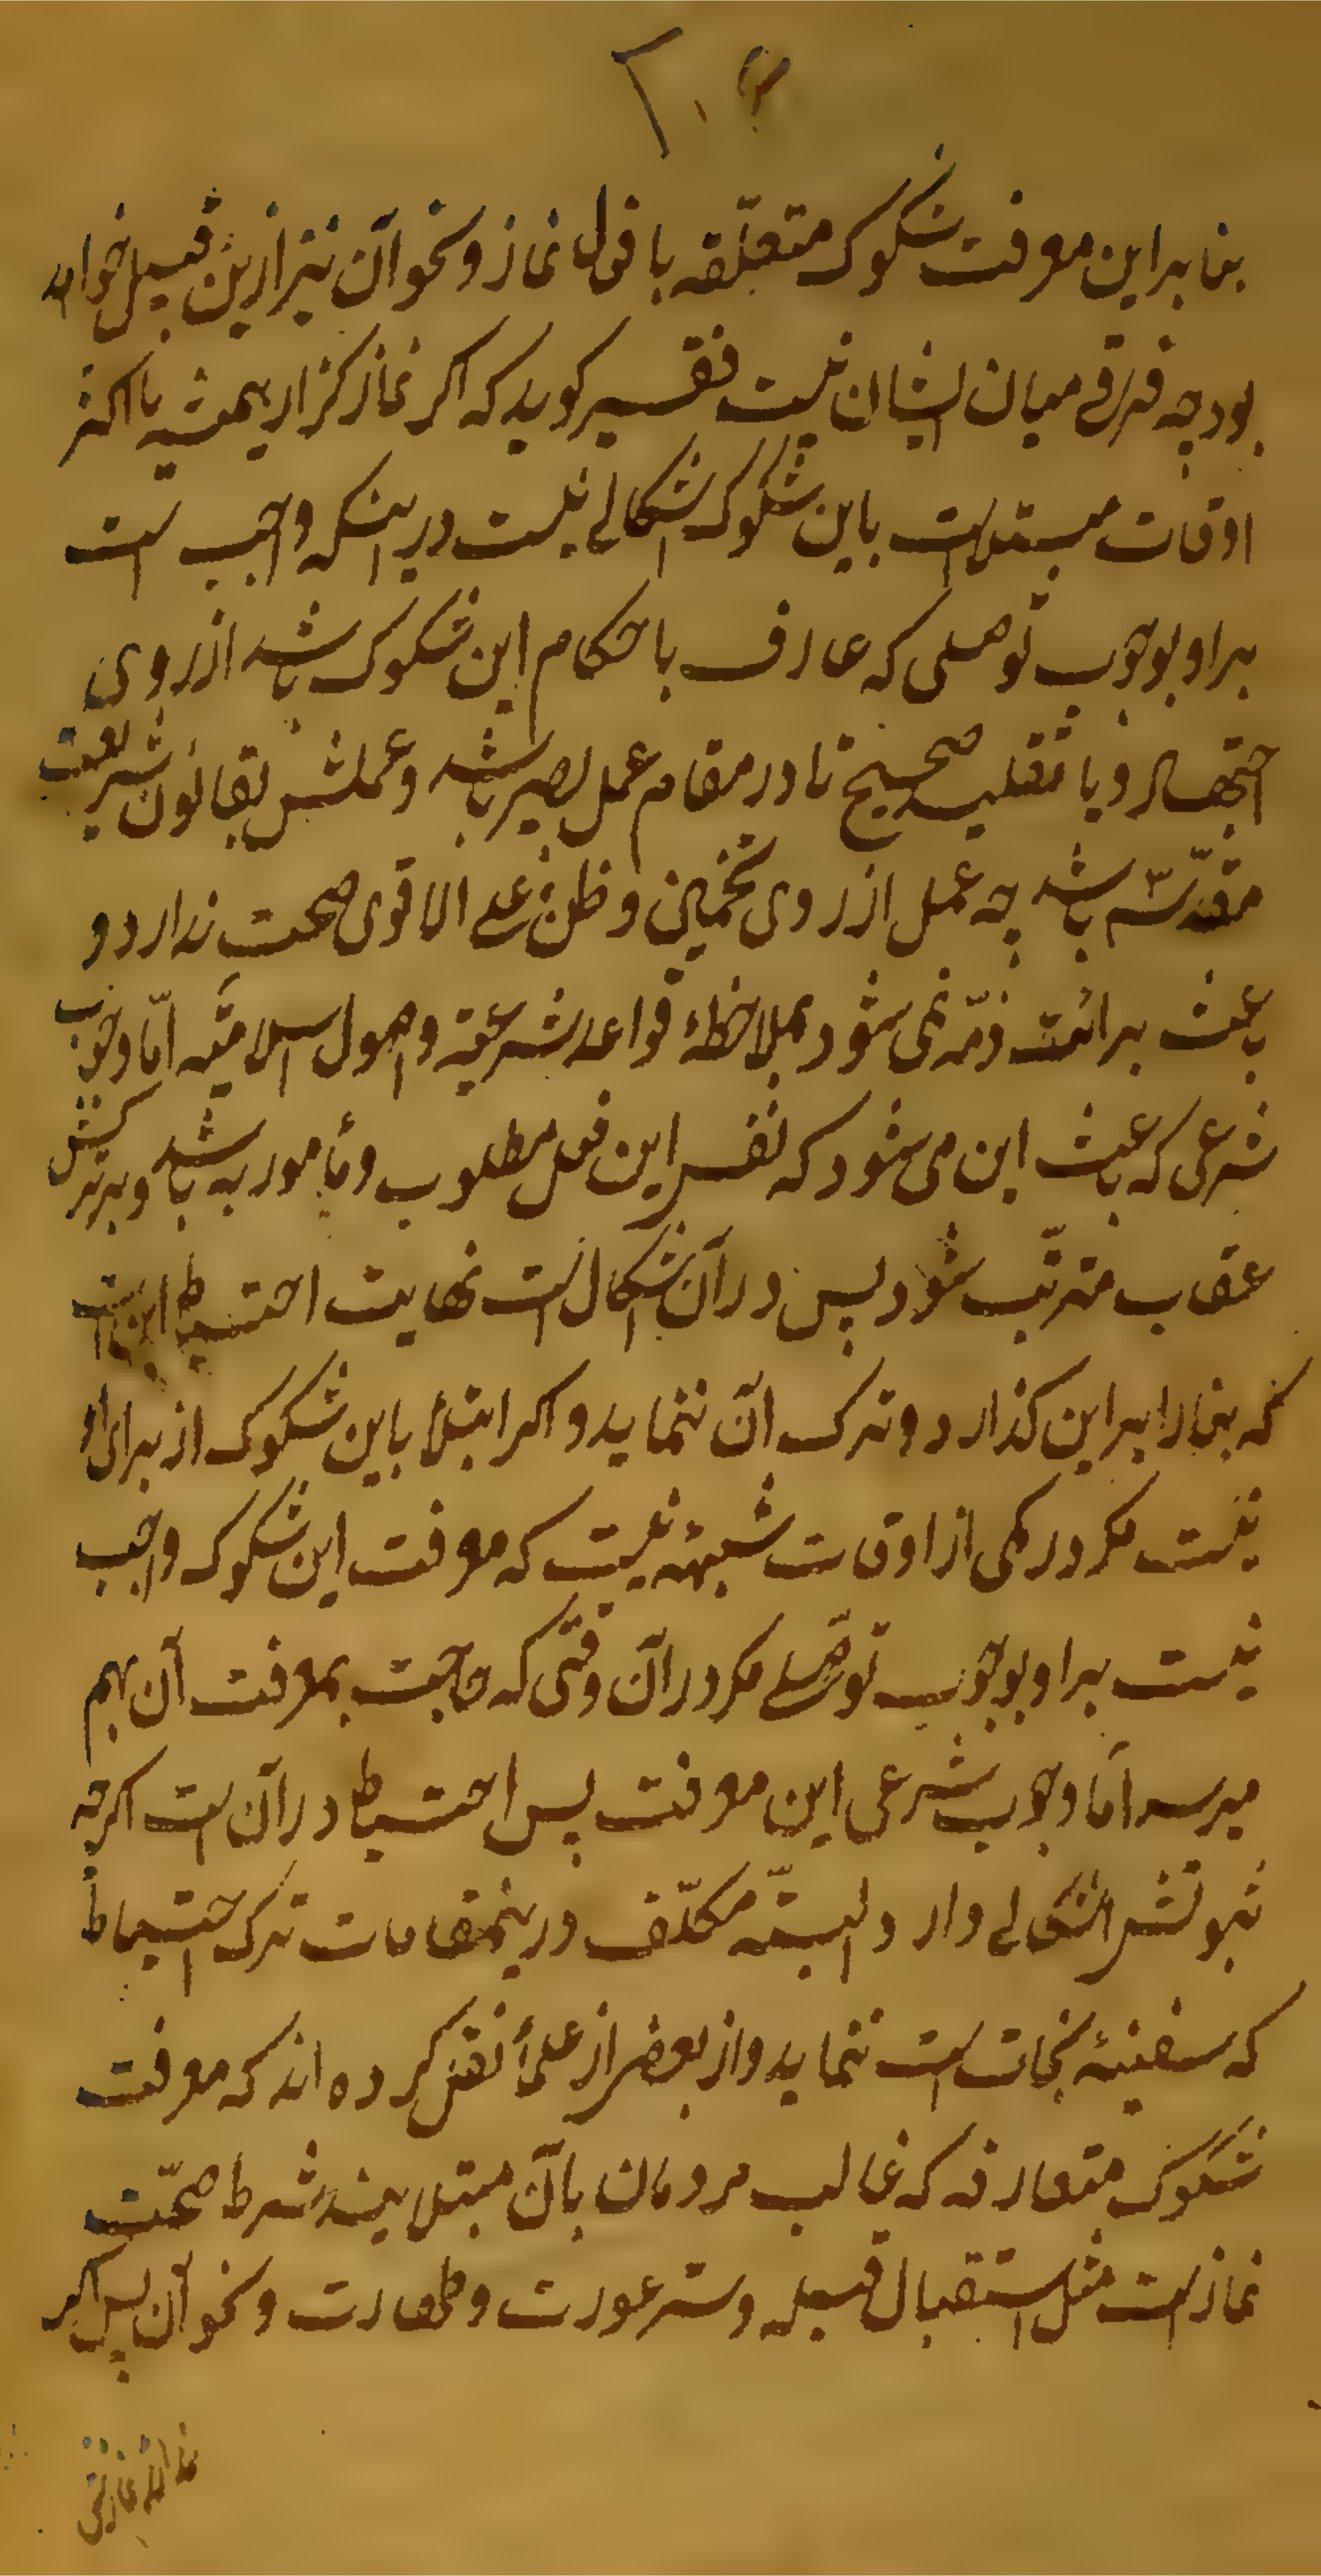 بنا براین معرفت شکوک متعلّقه بافعال نماز و نحو آن نیز ازین قبیل خواهد
بود چه فرقی میان ایشان نیست فقیر کوید که اکر نماز کزار همیشه یا اکثر
اوقات مبتلاست باین شکوک اشکالی نیست در اینکه واجب است
بر او بوجوب توصلی که عارف باحکام این شکوک باشد از روی
اجتهاد و یا تقلید صحیح تا در مقام عمل بصیر باشد و عملش بقانون شریعت
مقدّسه باشد چه عمل از روی تخمین و ظنّ علی الاقوی صحت ندارد و
باعث برائت ذمّه نمی شود بملاحظهٔ قواعد شرعیّه و اصول اسلامیّه امّا وجوب
شرعی که باعث این می شود که نفس این فعل مطلوب و مأمور به باشد و بر ترکش
عقاب مترتّب شود پس در آن اشکال است نهایت احتیاط این است
که بنا را بر این کذارد و ترک آن ننماید و اکر ابتلاء باین شکوک از برای او
نیست مکر در کمی از اوقات شبهه نیست که معرفت این شکوک واجب
نیست بر او بوجوب توصّلی مکر در آن وقتی که حاجت بمعرفت آن بهم
میرسد امّا وجوب شرعی این معرفت پس احتیاط در آن است اکرچه
ثبوتش اشکالی دارد البتّه مکلّف در ینمقامات ترک احتیاط
که سفینهٔ نجات است ننماید و از بعضی از علمأ نقل کرده اند که معرفت
شکوک متعارفه که غالب مردمان بآن مبتلایند شرط صحّت
نماز است مثل استقبال قبله و ستر عورت و طهارت و نحو آن پس اکر